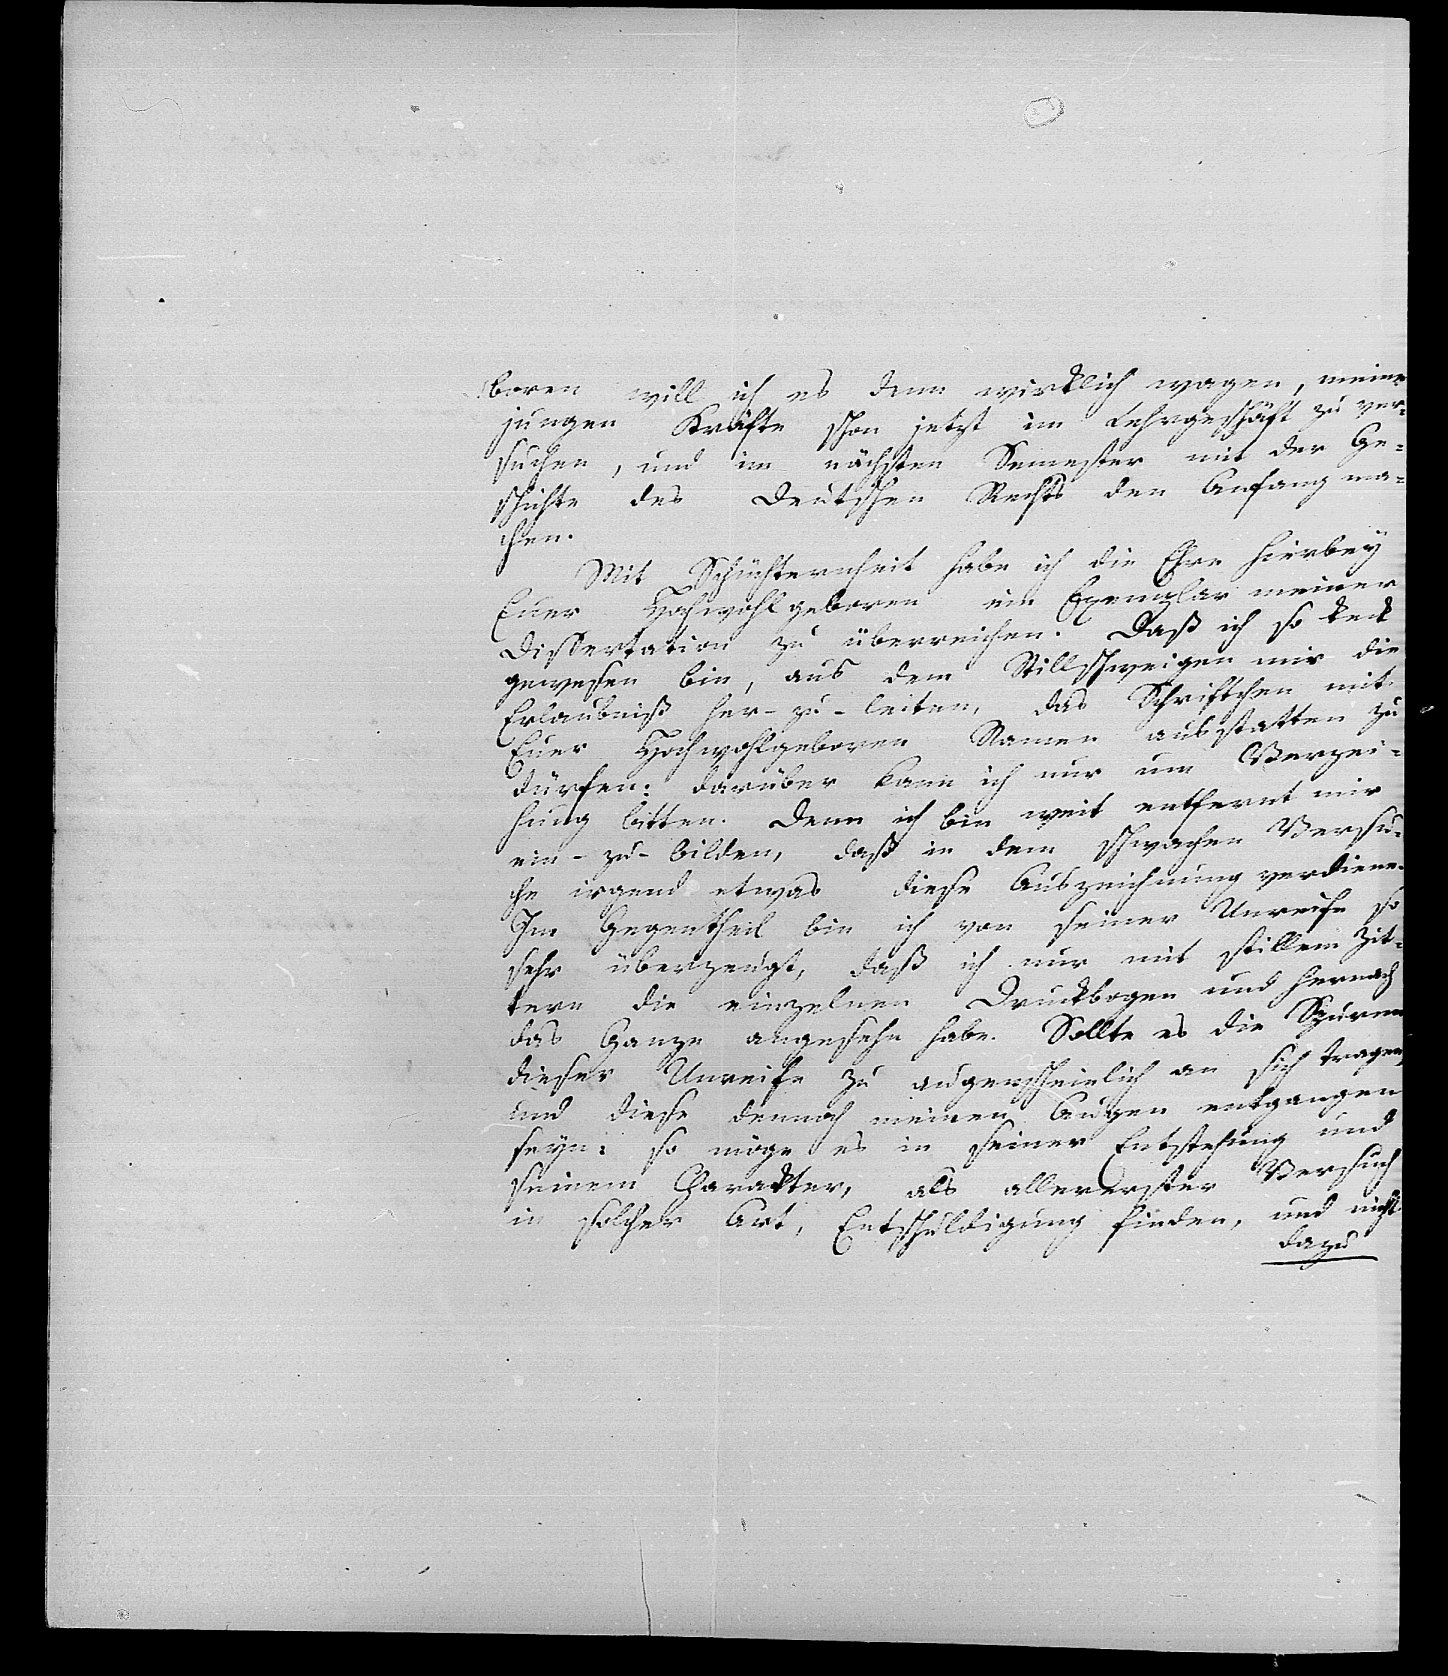 boren will ich es denn wirklich wagen, meine
jungen Kräfte schon jetzt im Lehrgeschäft zu ver-
suchen, und im nächsten Semester mit der Ge-
schichte des Deutschen Rechts den Anfang ma-
chen.
Mit Schüchternheit habe ich die Ehre hierbey
Euer Hochwohlgeboren ein Exemplar meiner
Dissertation zu überreichen. Daß ich so keck
gewesen bin, aus dem Stillschweigen mir die
Erlaubniß her-zu-leiten, das Schriftchen mit
Euer Hochwohlgeboren Namen ausstatten zu
dürfen: darüber kann ich nur um Verzei-
hung bitten. Denn ich bin weit entfernt mir
ein-zu-bilden, daß in dem schwachen Versu-
che irgend etwas diese Auszeichnung verdiene.
Im Gegentheil bin ich von seiner Unreife so
sehr überzeugt, daß ich nur mit stillem Zit-
tern die einzelnen Druckbogen und hernach
das Ganze angesehn habe. Sollte es die Spuren
dieser Unreife zu augenscheinlich an sich tragen,
und diese dennoch meinen Augen entgangen
seyn: so möge es in seiner Entstehung und
seinem Charakter, als allererster Versuch
in solcher Art, Entschuldigung finden, und nicht
dazu